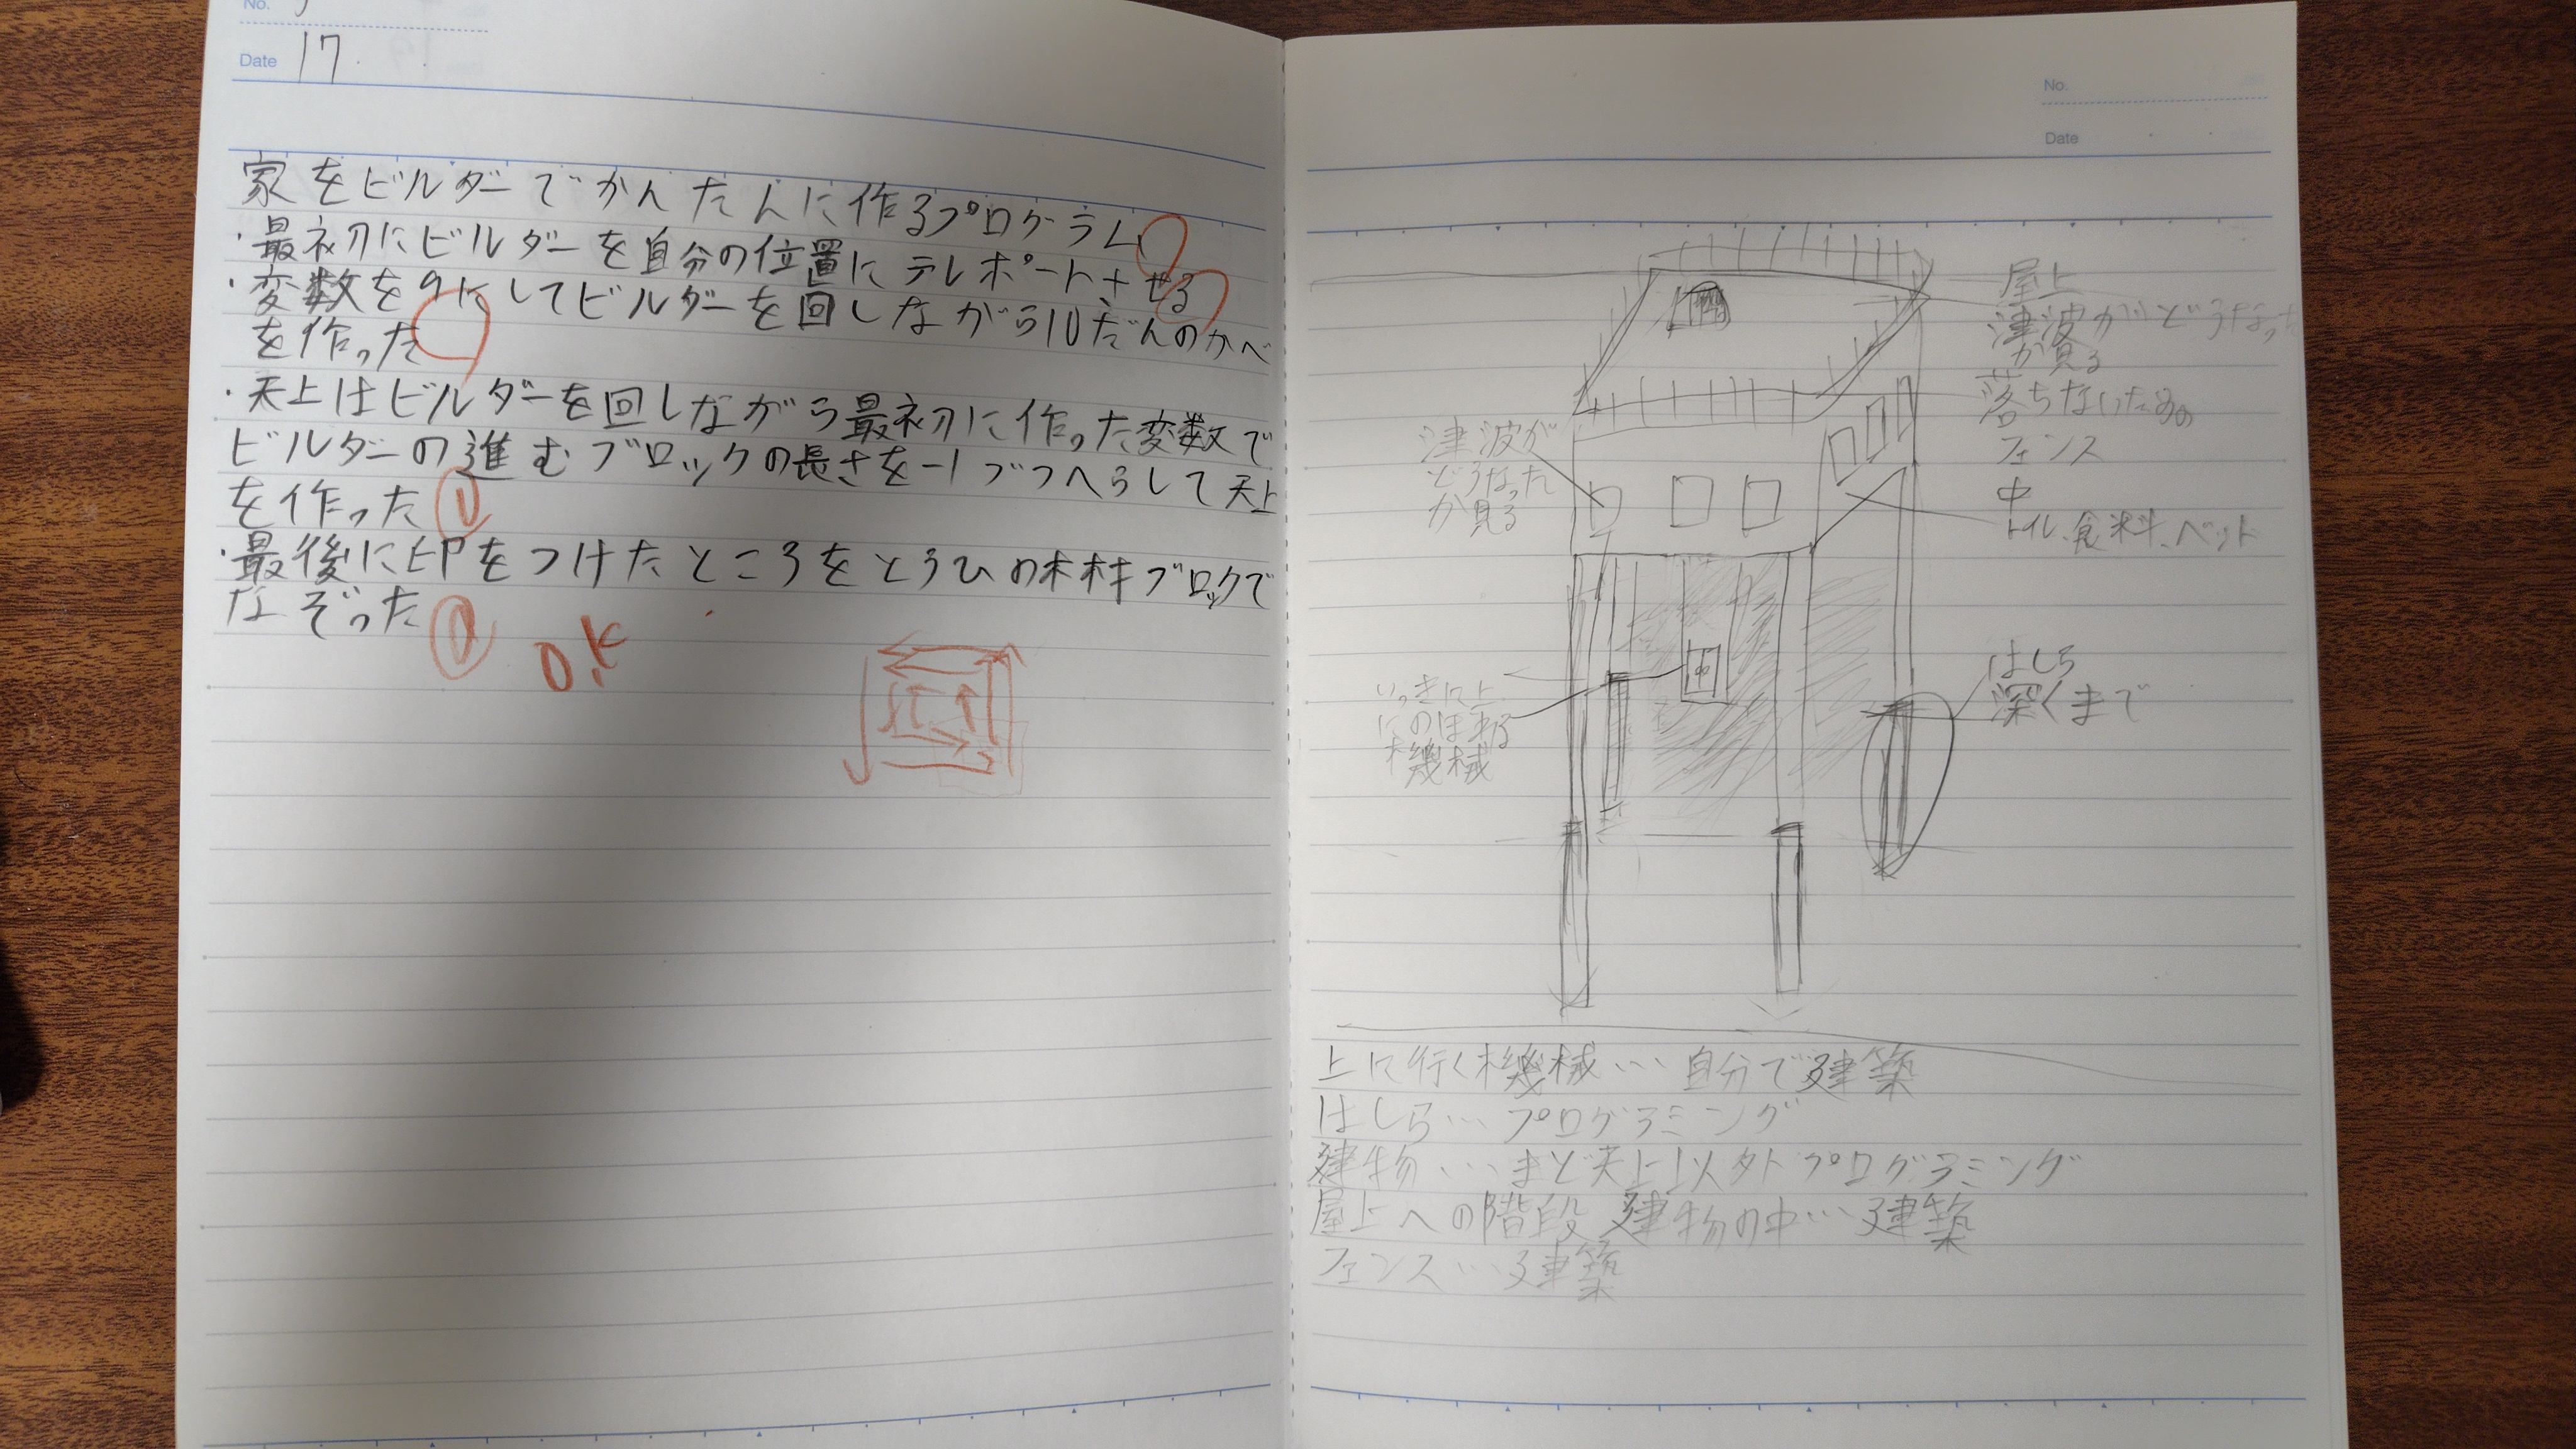 No.
Date 17
家をビルダーでかんたんに作るプログラム
・最初にビルダーを自分の位置にテレポートさせる
・変数を9にしてビルダーを回しながら10だんのかべ
を作った
・天上はビルダーを回しながら最初に作った変数で
ビルダーの進むブロックの長さを-1づつへらして天上
を作った
・最後に印をつけたところをとうひの木材ブロックで
なぞった
O.K
No.
Date
屋上
津波がどうなった
か見る
落ちないための
フェンス
中
トイレ、食料、ベット
津波が
どうなった
か見る
いっきに上
にのぼれる
機械
はしら
深くまで
上に行く機械…自分で建築
はしら…プログラミング
建物…まど天上以外プログラミング
屋上への階段 建物の中…建築
フェンス…建築